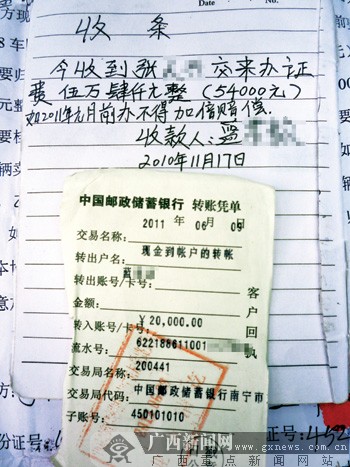 收条
今收到张 交来办证
费伍万肆仟元整(54000元)
如2011年元月前办不得加倍赔偿.
收款人:蓝
2010年11月17日
中国邮政储蓄银行 转账凭单
2011 年 06 月 09
交易名称:
现金到帐户的转帐
转出户名:
蓝
转出账号/卡号:
金额:
¥20,000.00
转入账号/卡号:
622188611001
流水号:
200441
交易局名称:
中国邮政储蓄银行南宁市
交易局代码:
450101010
子账号:
客户回执
份证号:
号:452
广西新闻网
www.gxnews.com.cn
广西重点新闻网站